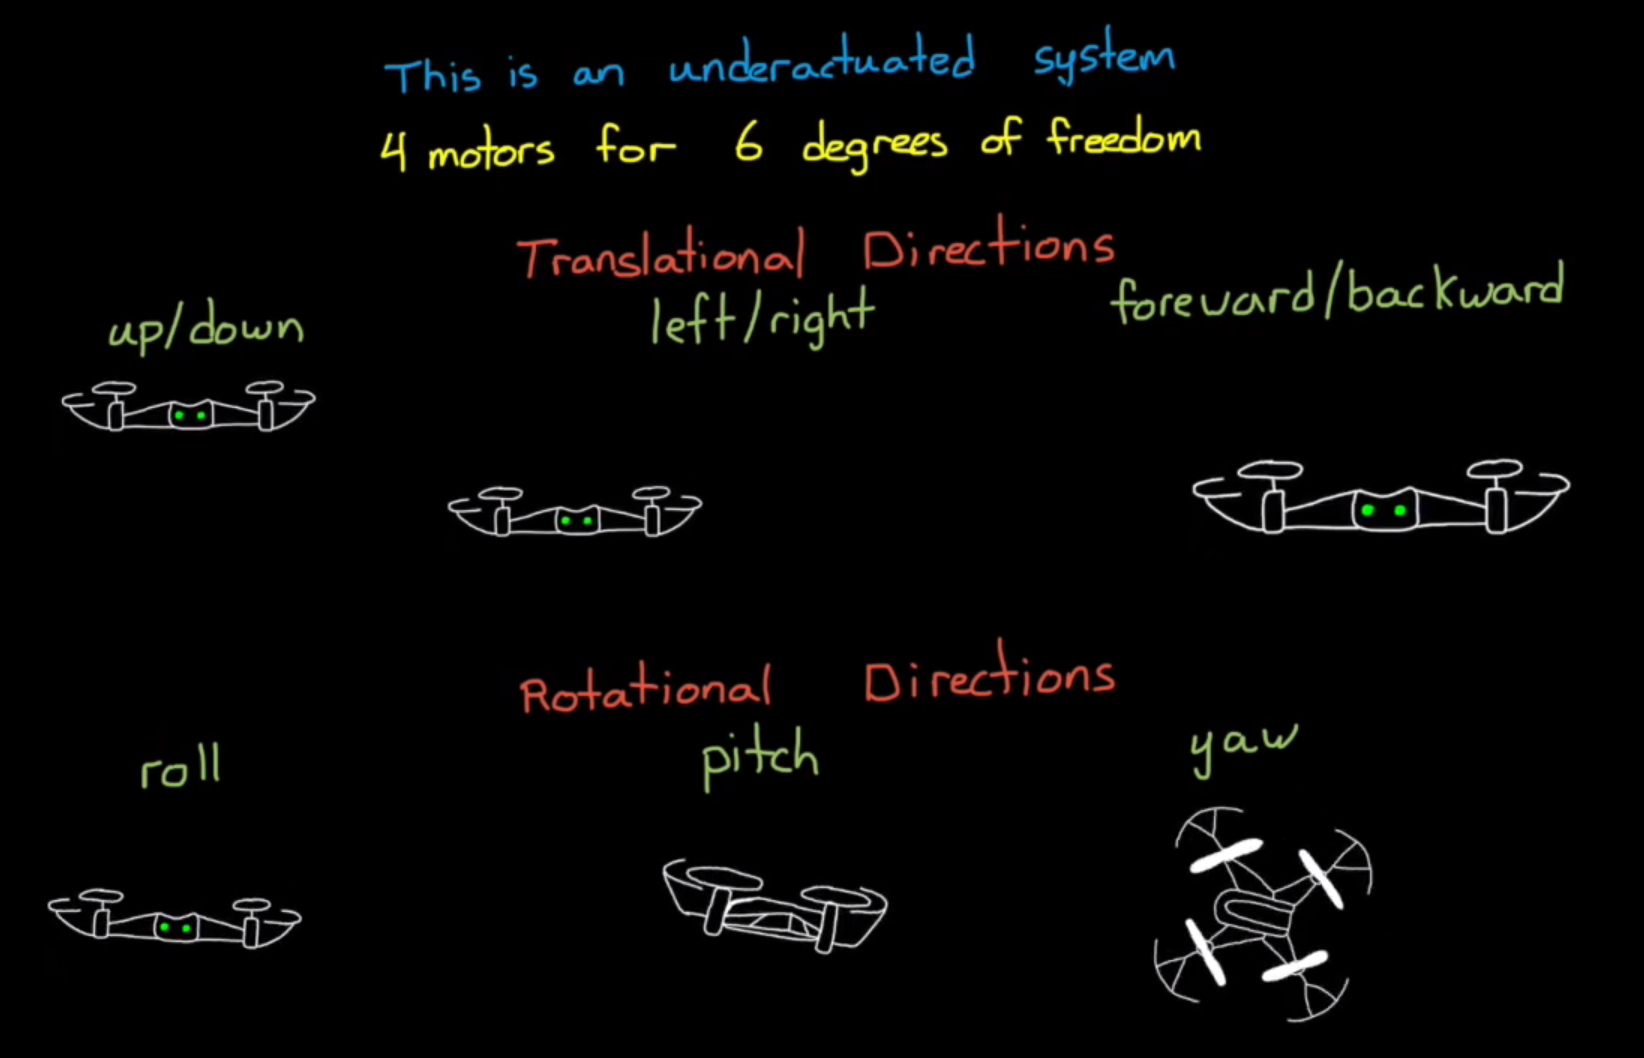 This is an underactuated system
4 motors for 6 degrees of freedom
Translational Directions
up/down
left/right
foreward/backward
Rotational Directions
roll
pitch
yaw